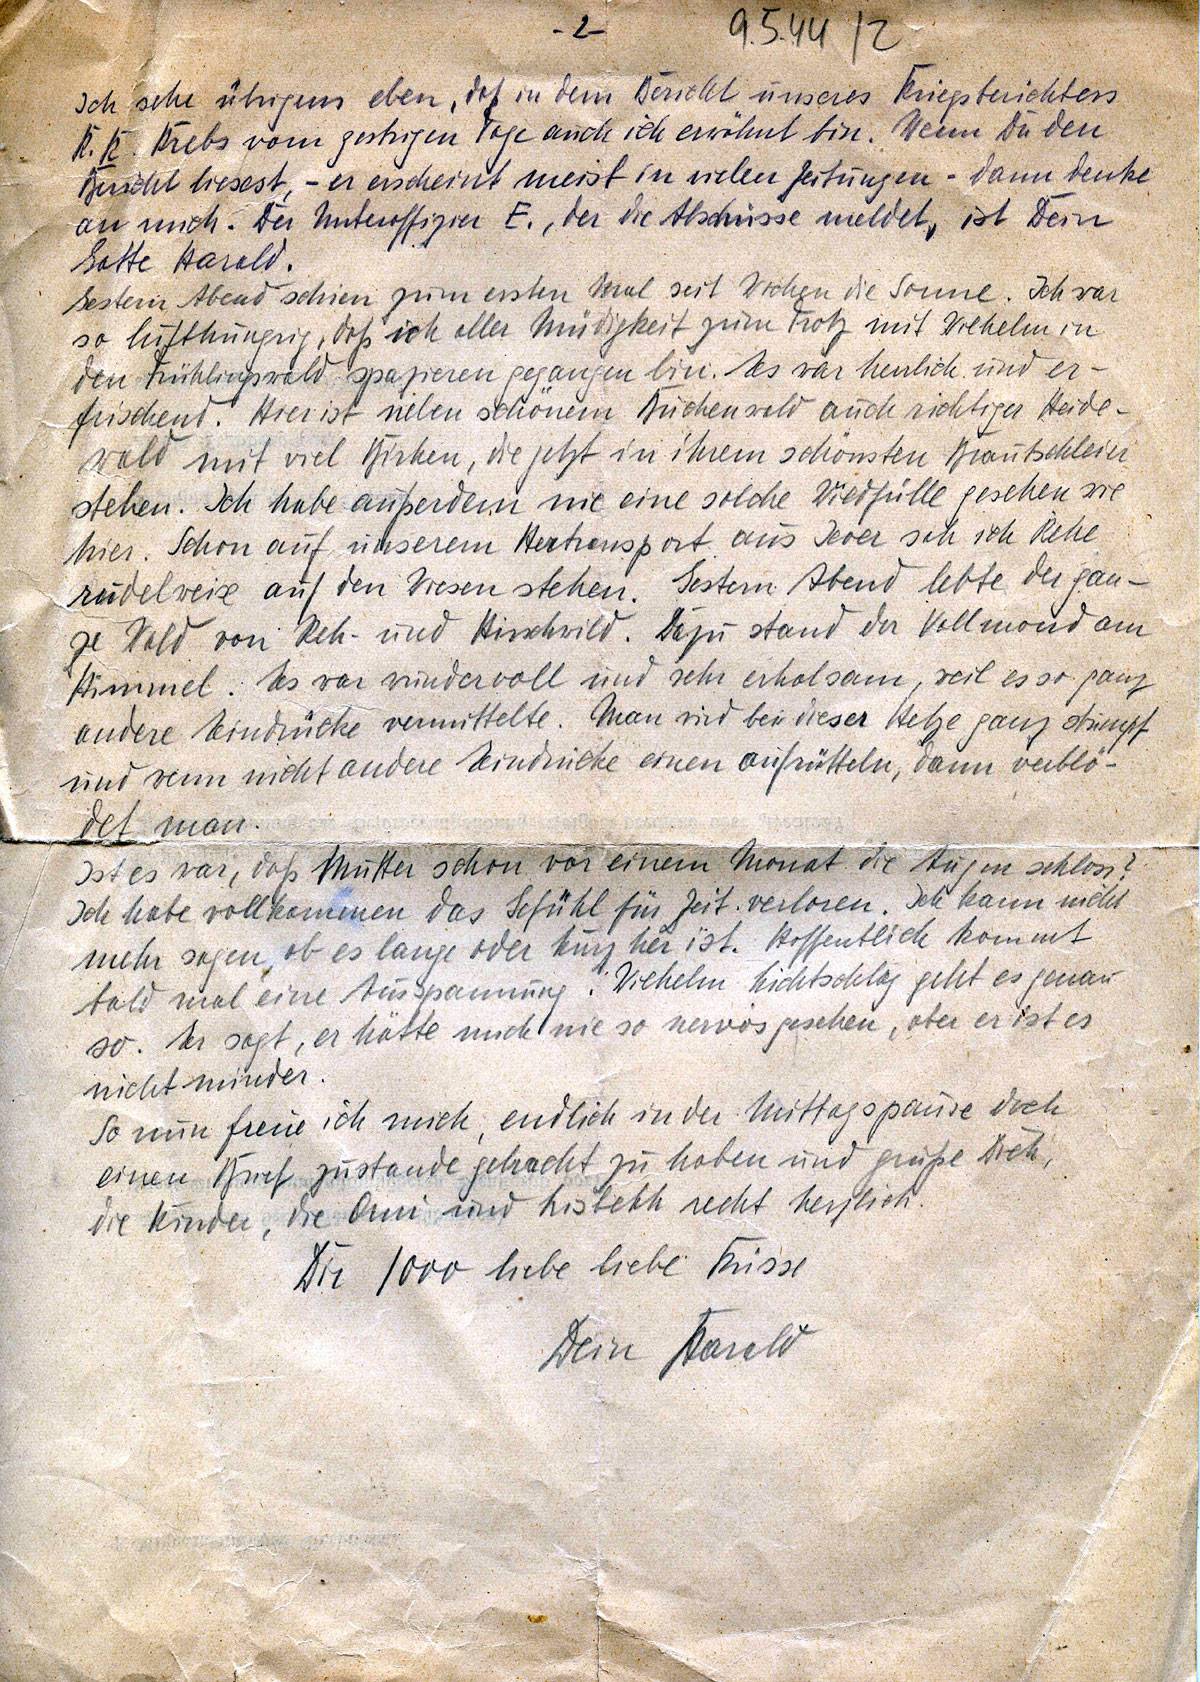 -2-
9.5.44 /2
Ich sehe übrigens eben, daß in dem Bericht unseres Kriegsberichters
K.K. Krebs vom gestrigen Tage auch ich erwähnt bin. Wenn Du den
Bericht liesest, - er erscheint meist in vielen Zeitungen - dann denke
an mich. Der Unteroffizier E., der die Abschüsse meldet, ist Dein
Gatte Harald.
Gestern Abend schien zum ersten Mal seit Wochen die Sonne. Ich war
so lufthungrig, daß ich aller Müdigkeit zum Trotz mit Wilhelm in
den Frühlingswald spazieren gegangen bin. Es war herrlich und er-
frischend. Hier ist neben schönem Buchenwald auch richtiger Heide-
wald mit viel Birken, die jetzt in ihrem schönsten Brautschleier
stehen. Ich habe außerdem nie eine solche Wildfülle gesehen wie
hier. Schon auf unserem Hertransport aus Jever sah ich Rehe
rudelweise auf den Wiesen stehen. Gestern Abend lebte der gan-
ze Wald von Reh- und Hirschwild. Dazu stand der Vollmond am
Himmel. Es war wundervoll und sehr erholsam, weil es so ganz
andere Eindrücke vermittelte. Man wird bei dieser Hetze ganz stumpf
und wenn nicht andere Eindrücke einen aufrütteln, dann verblö-
det man.
Ist es war, daß Mutter schon vor einem Monat die Augen schloss?
Ich habe vollkommen das Gefühl für Zeit verloren. Ich kann nicht
mehr sagen, ob es lange oder kurz her ist. Hoffentlich kommt
bald mal eine Ausspannung. Wilhelm Lichtschlag geht es genau
so. Er sagt, er hätte mich nie so nervös gesehen, aber er ist es
nicht minder.
So nun freue ich mich, endlich in der Mittagspause doch
einen Brief zustande gebracht zu haben und grüße Dich,
die Kinder, die Omi und recht herzlich.
Dir 1000 liebe liebe Küsse
Dein Harald